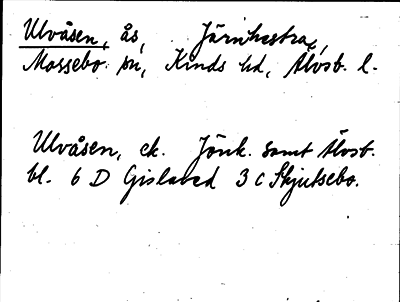 Ulvåsen, ås, Järnhestra,
Mossebo sn, Kinds hd, Älvsb. l.
Ulvåsen, ek. Jönk. samt Älvsb.
bl. 6 D Gislaved 3 c Skjutsebo.